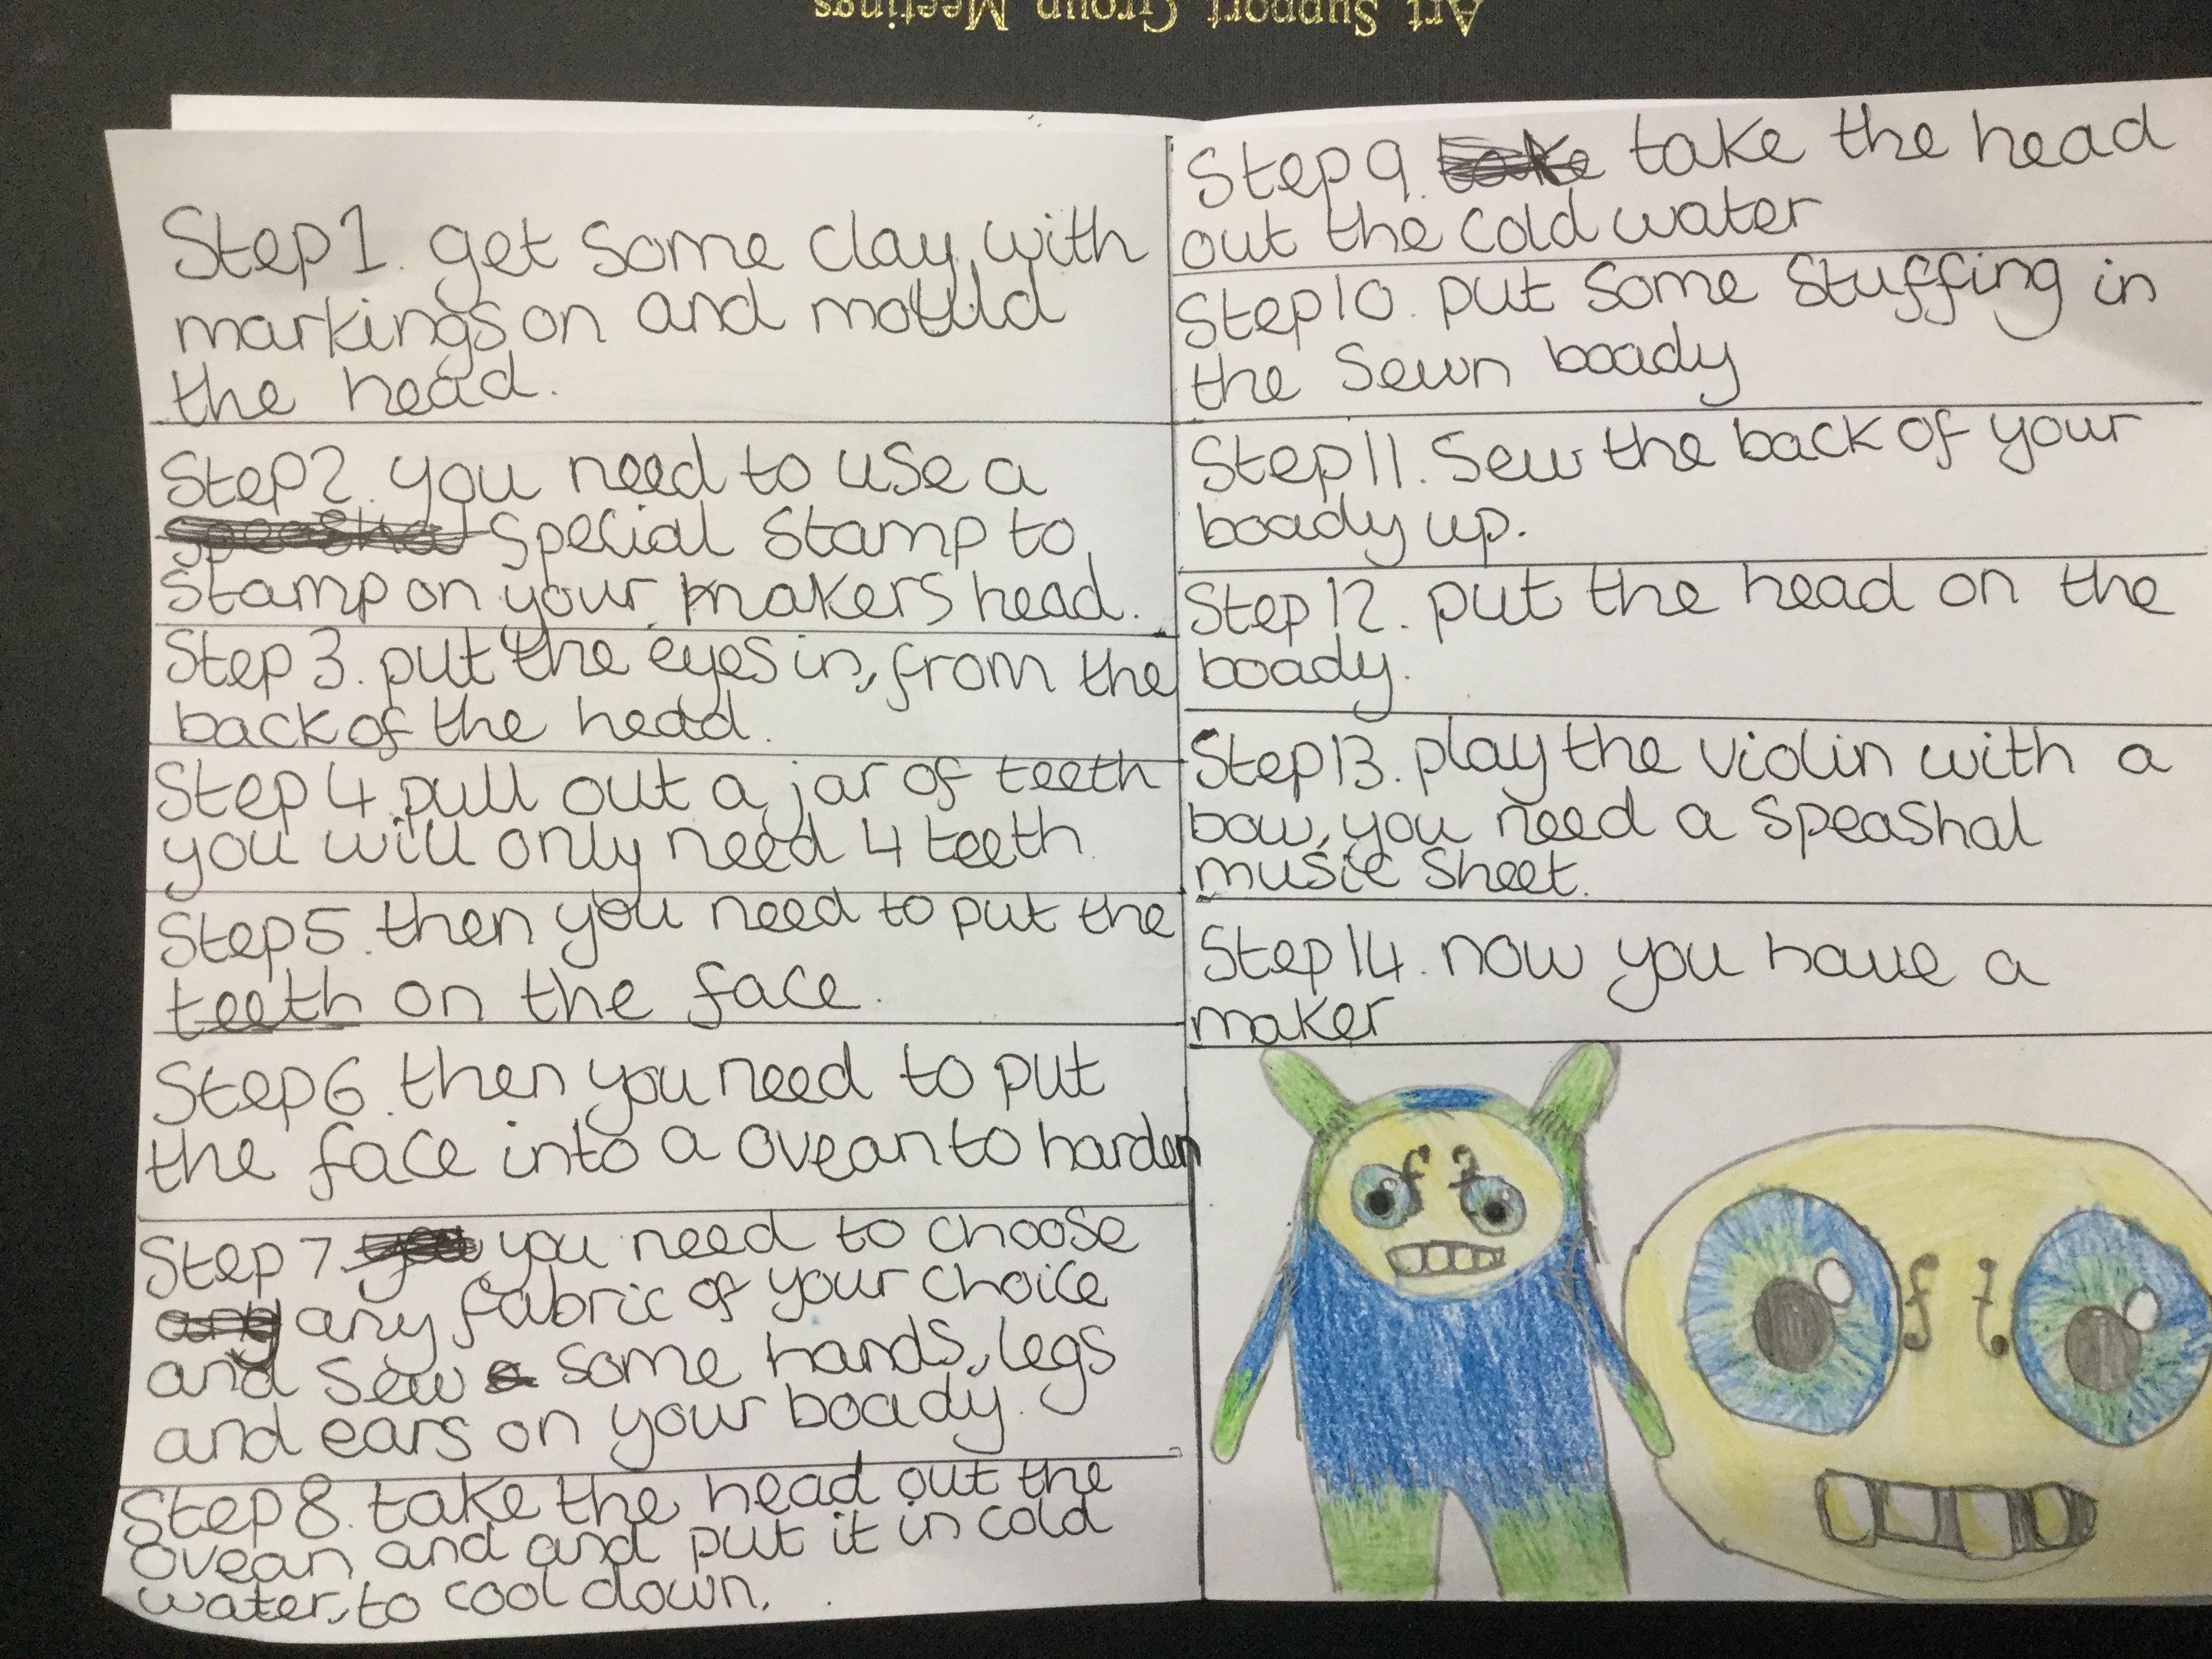 Art Support Group Meetings
Step 1. get some clay, with
markings on and mould
the head.
Step 2. you need to use a
special stamp to
stamp on your makers head.
Step 3. put the eyes in, from the
back of the head.
Step 4. pull out a jar of teeth
you will only need 4 teeth.
Step 5. then you need to put the
teeth on the face.
Step 6. then you need to put
the face into a ovean to harden
Step 7. you need to choose
any fabric of your choice
and sew some hands, legs
and ears on your boady.
Step 8. take the head out the
ovean and and put it in cold
water, to cool down.
Step 9. take the head
out the cold water
Step 10. put some stuffing in
the sewn boady
Step 11. Sew the back of your
boady up.
Step 12. put the head on the
boady.
Step 13. play the violin with a
bow, you need a speashal
music sheet.
Step 14. now you have a
maker